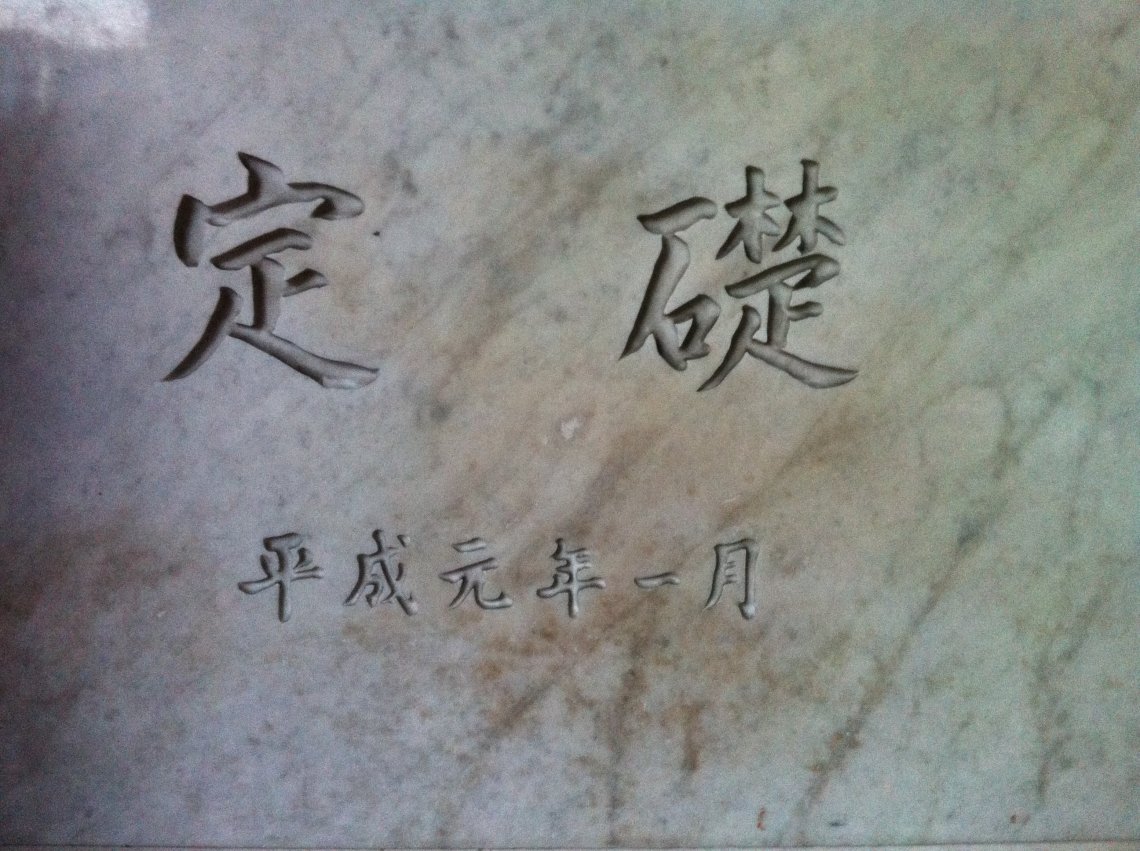 定礎
平成元年一月